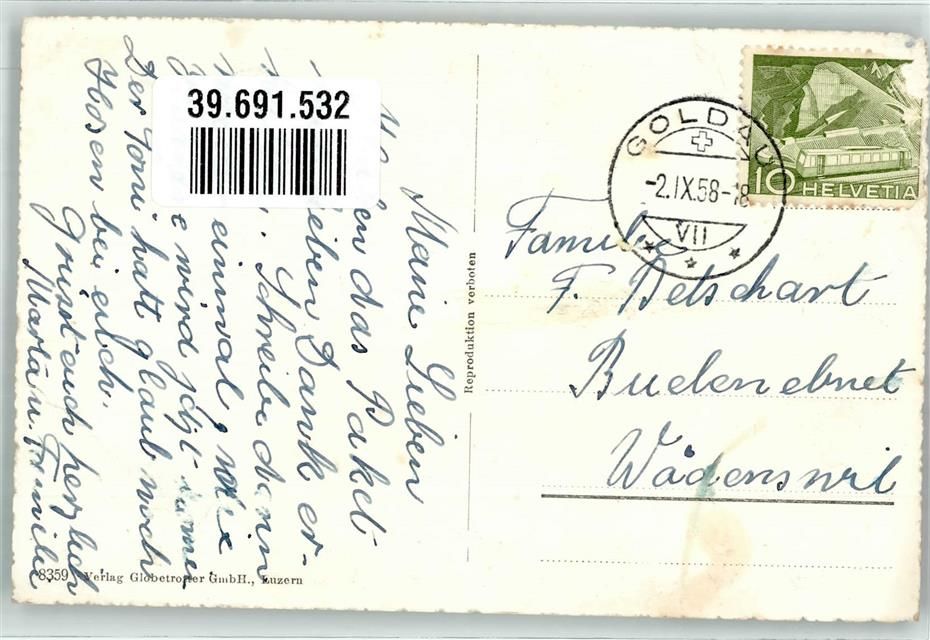 39.691.532
Meine Lieben
das Paket
lieben Dank er-
Schreibe dann
einmal,
wird jetzt
Der Toni hatt glaub noch
Hosen bei euch.
Grüsst euch herzlich
Marta u. Familie
8359 Verlag Globetrotter GmbH., Luzern
Reproduktion verboten
GOLDAU
-2.IX.58-18
VII
10 HELVETIA
Familie
F. Betschart
Buelenebnet
Wädenswil